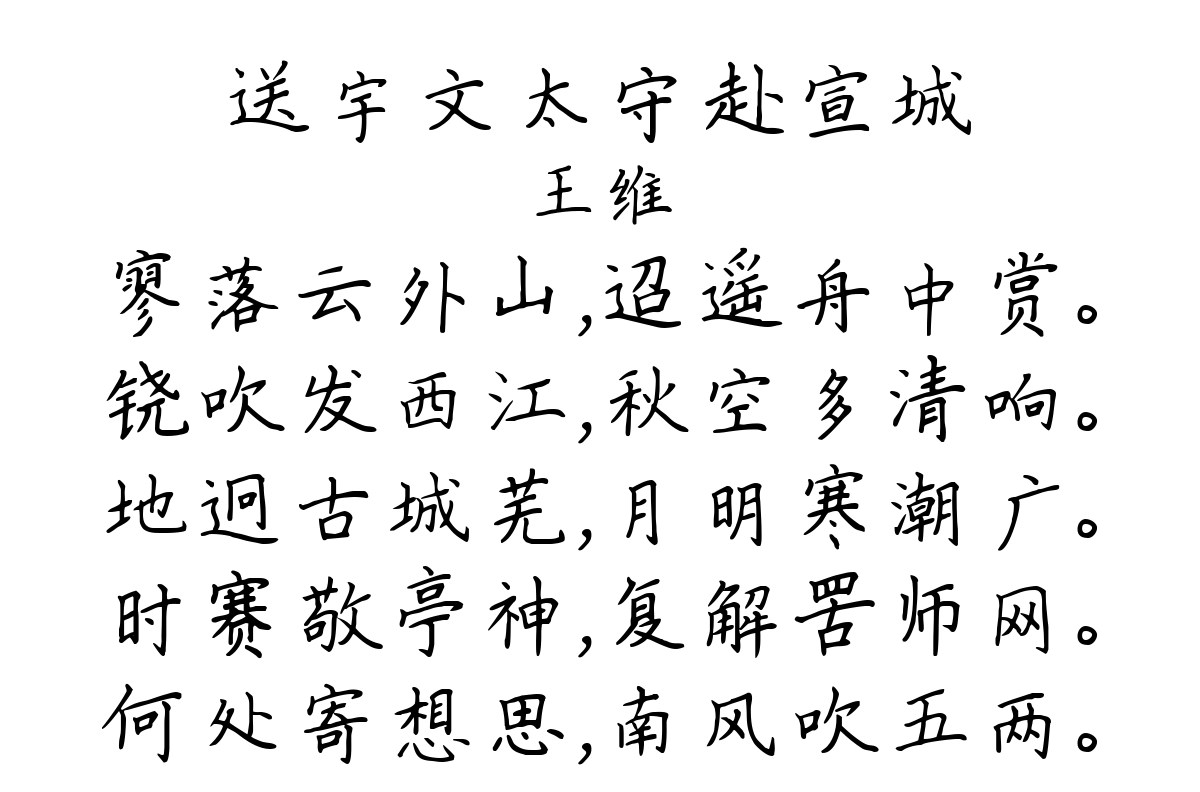 送宇文太守赴宣城
王维
寥落云外山,迢遥舟中赏。
铙吹发西江,秋空多清响。
地迥古城芜,月明寒潮广。
时赛敬亭神,复解罟师网。
何处寄想思,南风吹五两。